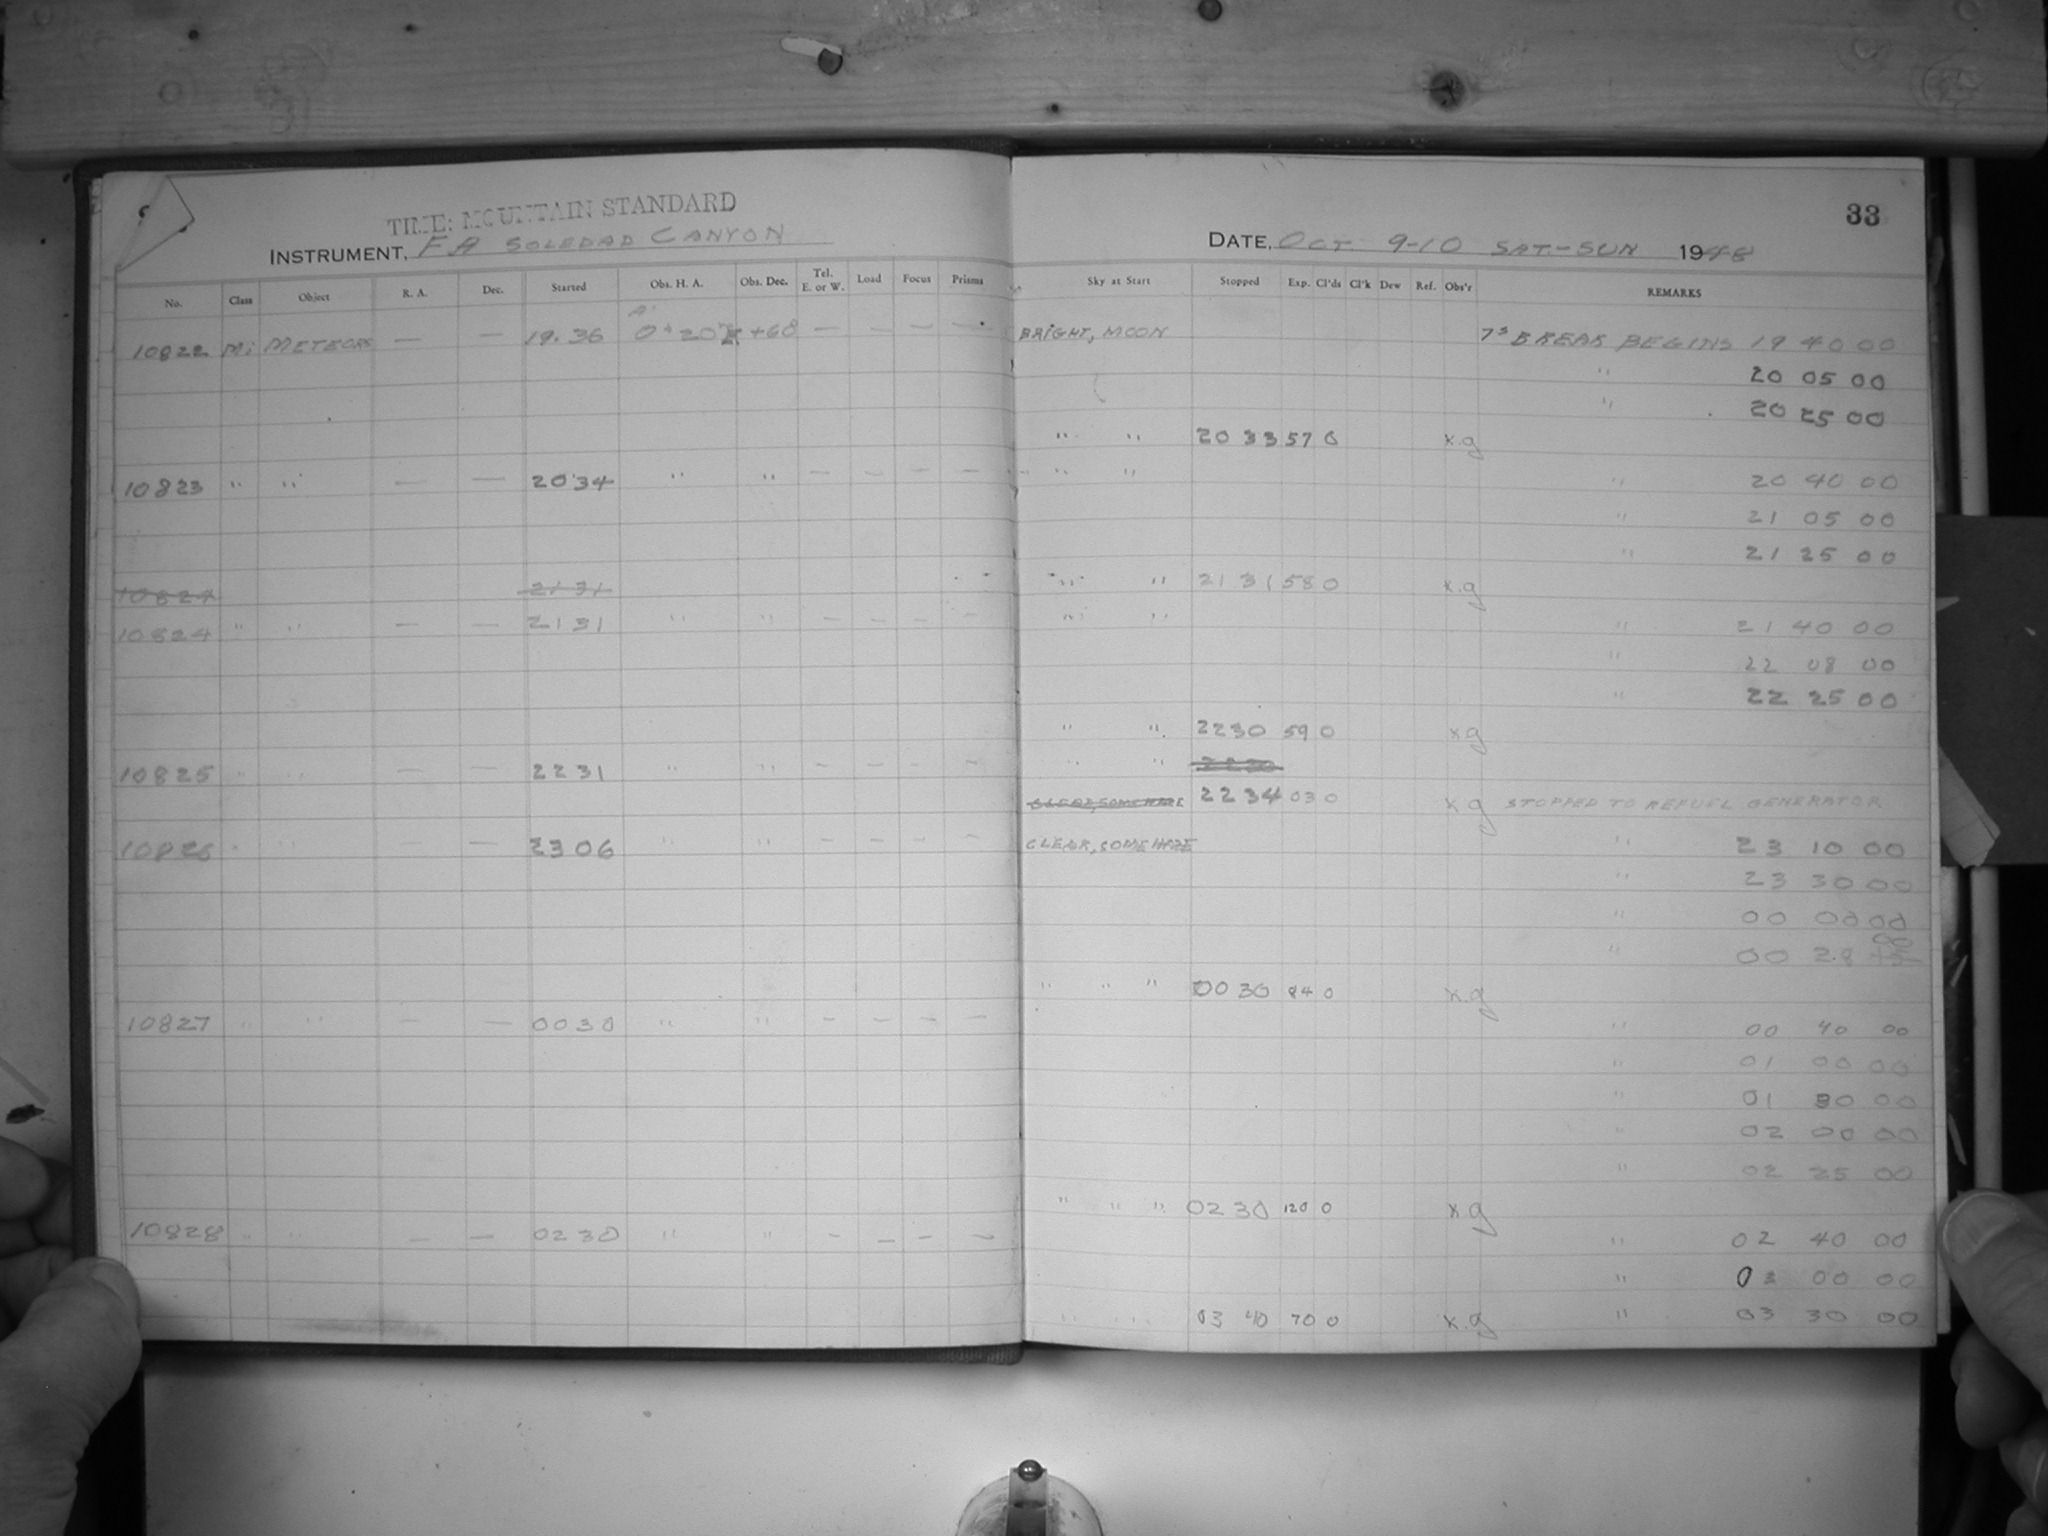 33
TIME: MOUNTAIN STANDARD
INSTRUMENT, FA SOLEDAD CANYON DATE, OCT. 9-10 SAT.-SUN 1948
No. Class Object R. A. Dec. Started Obs. H. A. Obs. Dec. Tel. E. or W. Load Focus Prisms Sky at Start Stopped Exp. Cl'ds Cl'k Dew Ref. Obs'r REMARKS
10822 Mi METEORS — — 19.36 +60 — — — — BRIGHT, MOON 7s BREAK BEGINS 19 40 00
" 20 05 00
" 20 25 00
" " 20 33 57 0 x.g
10823 " " — — 20 34 " " — — — — " " " 20 40 00
" 21 05 00
" 21 25 00
10824 2131 " " 2131 58 0 x.g
10824 " " — — 2131 " " — — — — " " " 21 40 00
" 22 08 00
" 22 25 00
" " 2230 59 0 xg
10825 " " — — 2231 " " — — — — " " 2230
CLEAR, SOME HAZE 2234 03 0 xg STOPPED TO REFUEL GENERATOR
10826 " " — — 2306 " " — — — — CLEAR, SOME HAZE " 23 10 00
" 23 30 00
" 00 00 00
" 00 28 00
" " " 0030 84 0 x.g
10827 " " — — 0030 " " — — — — " 00 40 00
" 01 00 00
" 01 30 00
" 02 00 00
" 02 25 00
" " " 0230 120 0 xg
10828 " " — — 0230 " " — — — — " 02 40 00
" 03 00 00
" " " 03 40 70 0 x.g " 03 30 00